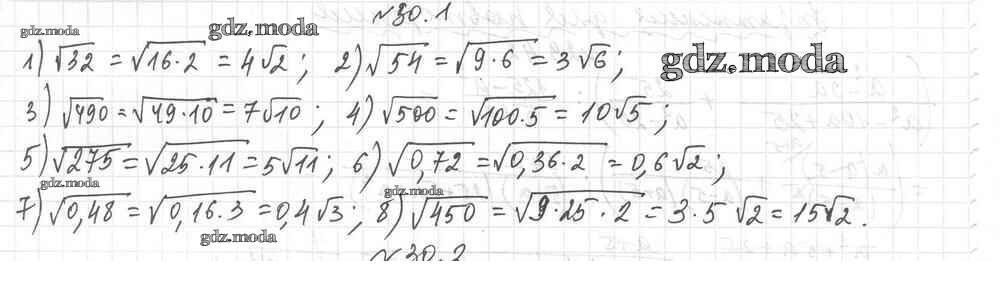 №30.1
gdz.moda gdz.moda
1) √32 = √16·2 = 4√2; 2) √54 = √9·6 = 3√6; gdz.moda
3) √490 = √49·10 = 7√10; 4) √500 = √100·5 = 10√5;
5) √275 = √25·11 = 5√11; 6) √0,72 = √0,36·2 = 0,6√2;
gdz.moda gdz.moda
7) √0,48 = √0,16·3 = 0,4√3; 8) √450 = √9·25·2 = 3·5√2 = 15√2.
gdz.moda
№30.2